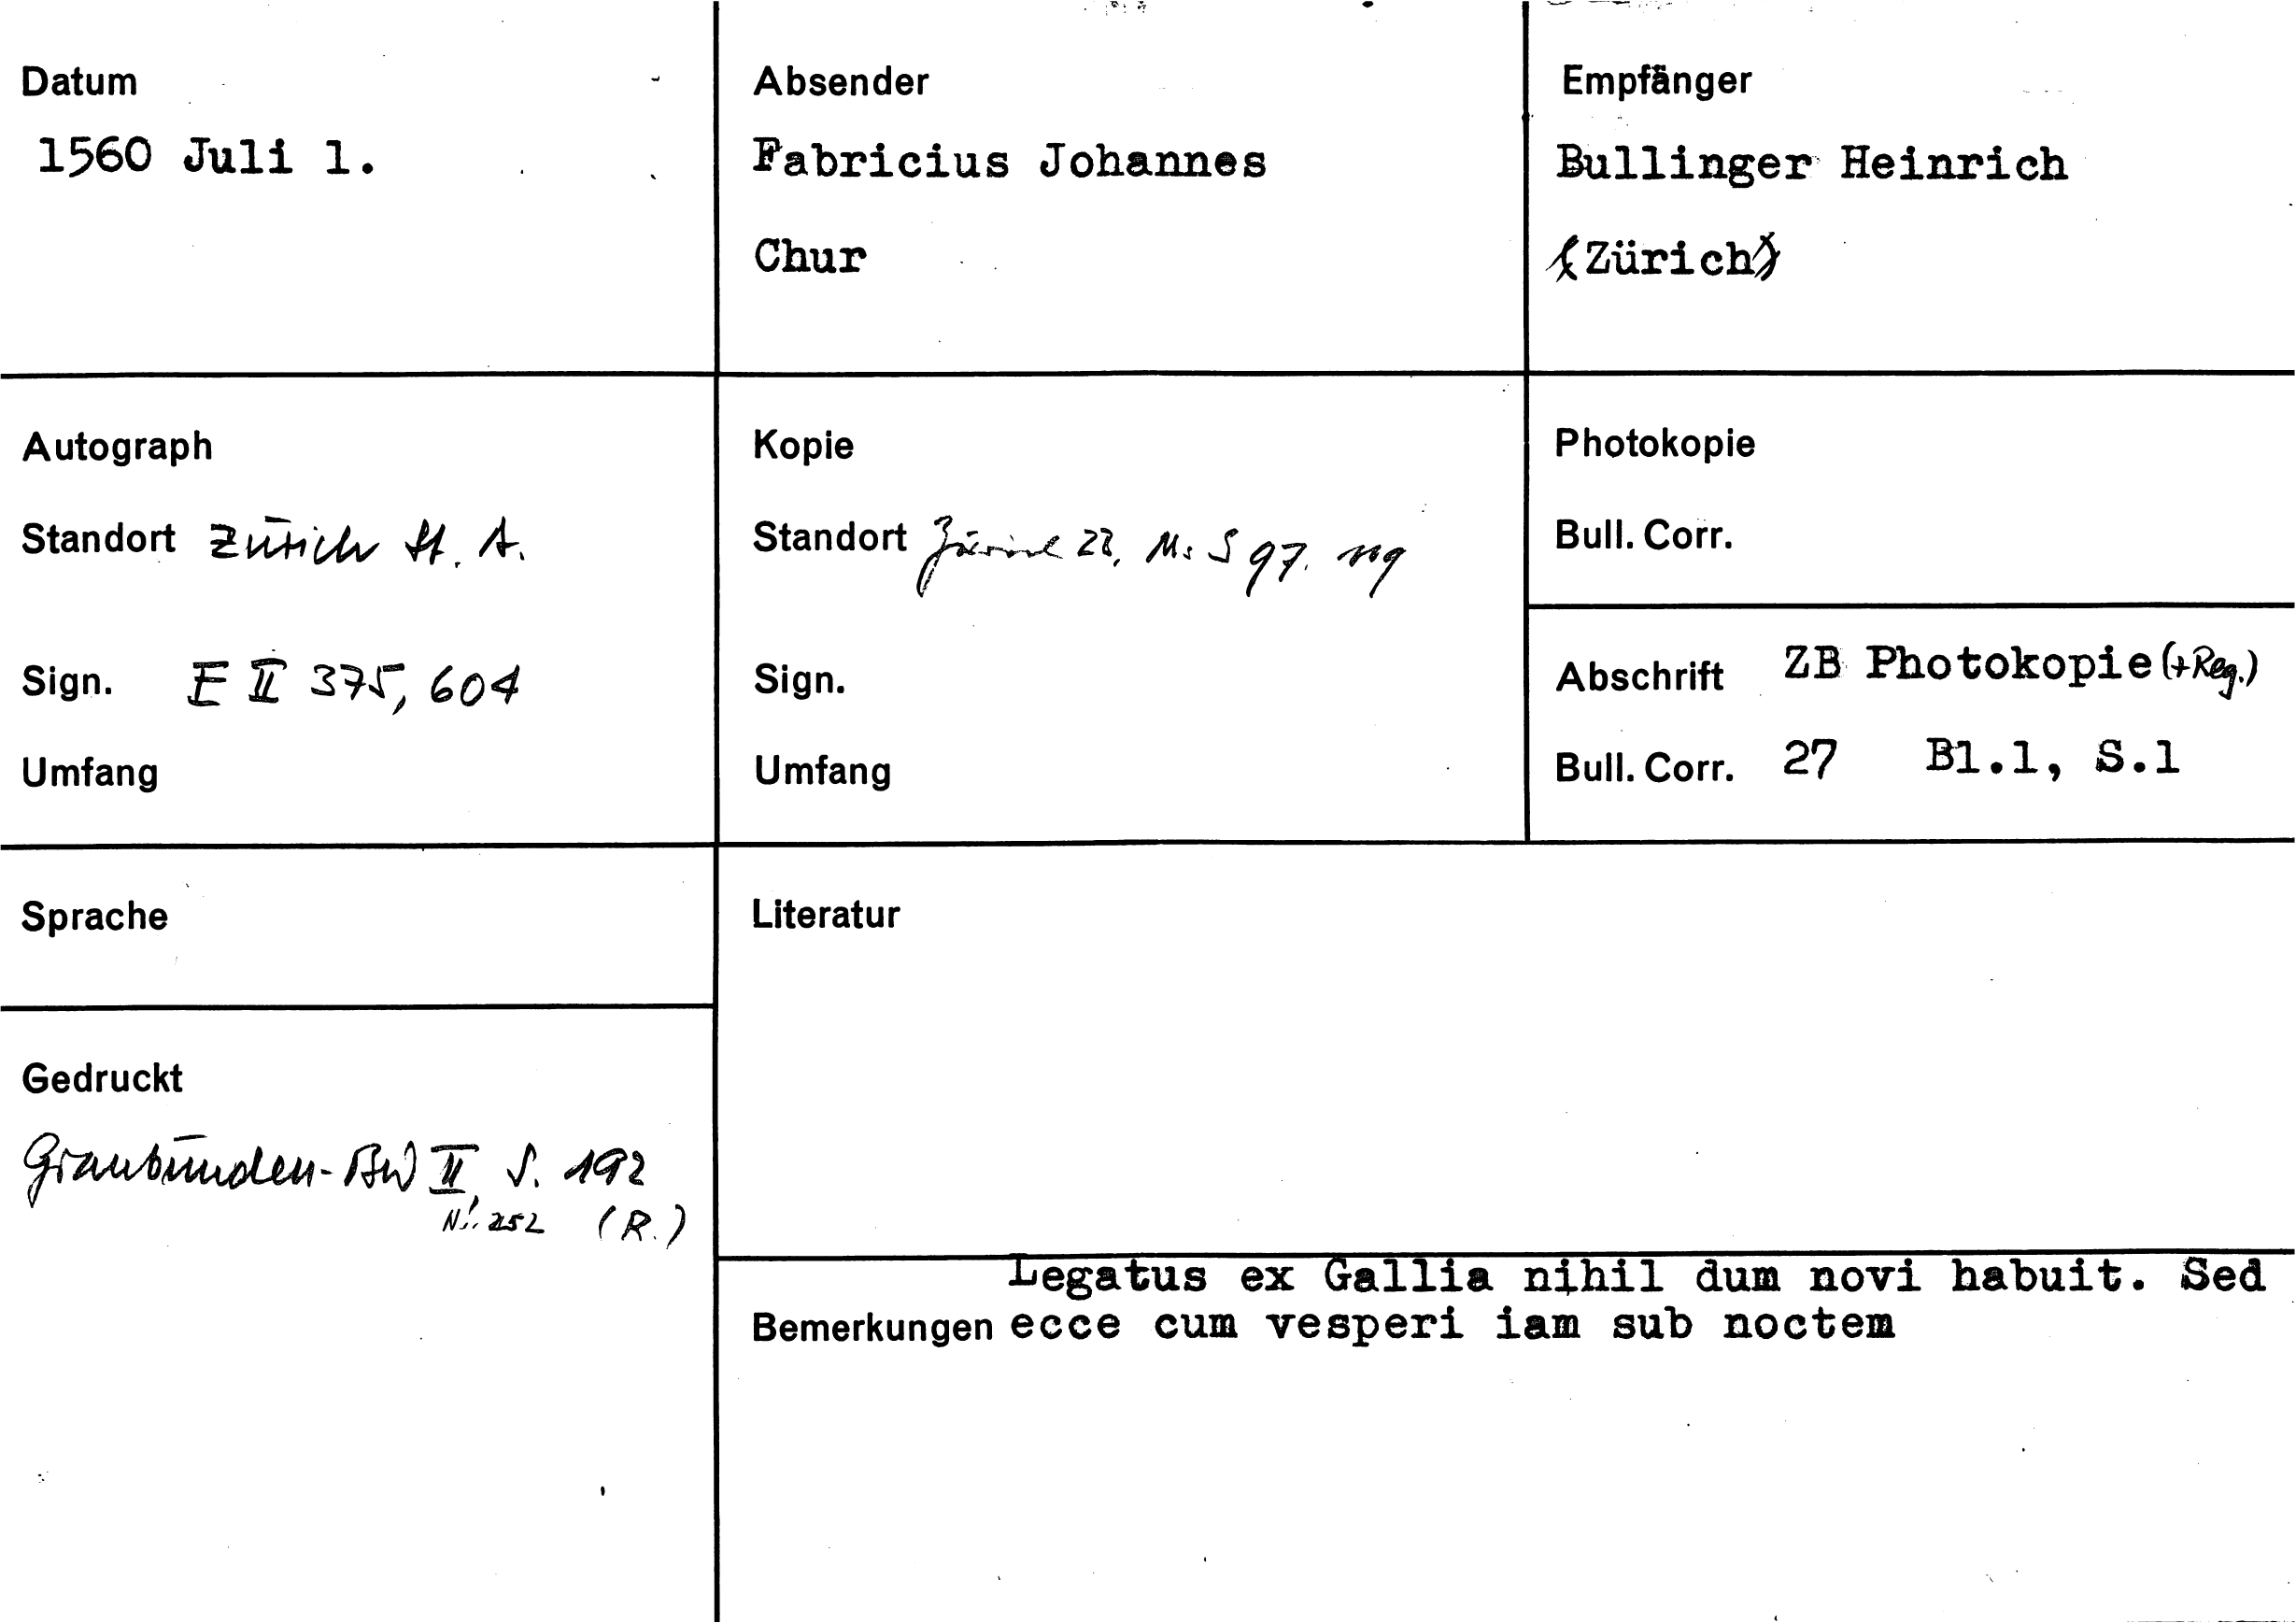 Datum
1560 Juli 1.
Absender
Fabricius Johannes
Chur
Empfänger
Bullinger Heinrich
(Zürich)
Autograph
Standort Zürich St. A.
Sign. E II 375, 604
Umfang
Kopie
Standort Zürich ZB, Ms S 97. 119
Sign.
Umfang
Photokopie
Bull. Corr.
Abschrift ZB Photokopie (+Reg.)
Bull. Corr. 27 Bl.1, S.1
Sprache
Literatur
Gedruckt
Graubünden-BW II, S. 192
Nr. 252 (R.)
Legatus ex Gallia nihil dum novi habuit. Sed
Bemerkungen ecce cum vesperi iam sub noctem